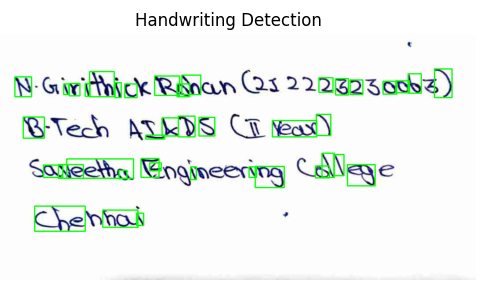 Handwriting Detection
N. Girithick Rohan (212223230063)
B-Tech AI&DS (II Year)
Saveetha Engineering College
Chennai